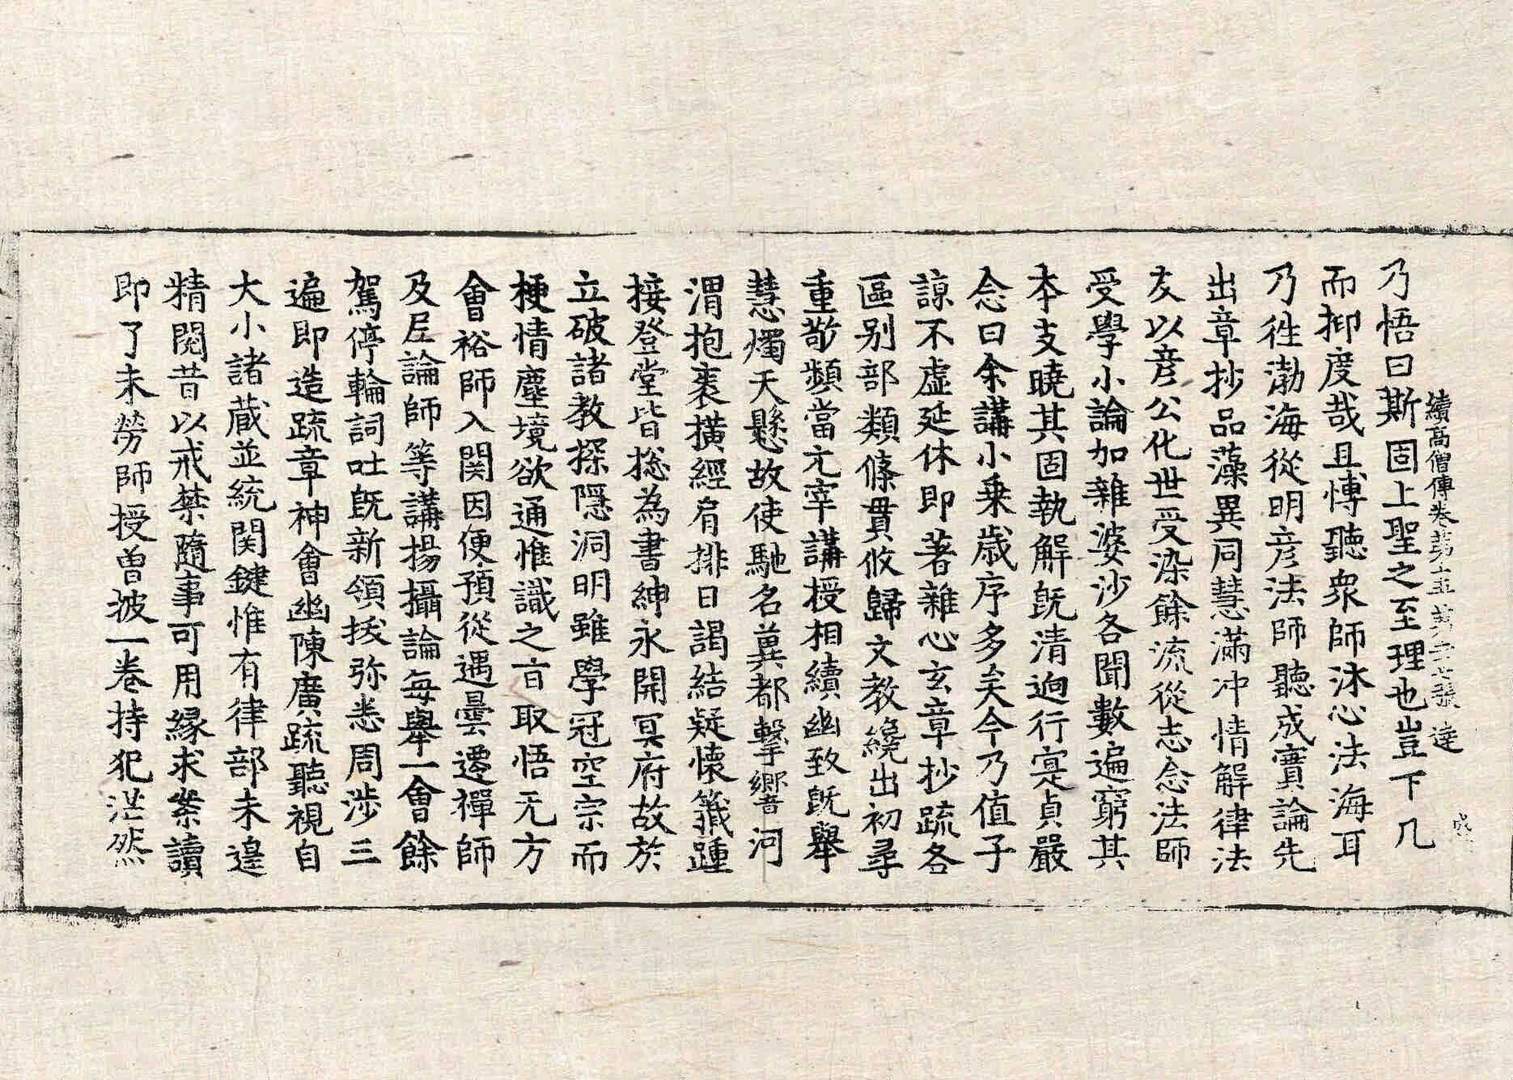 續高僧傳卷第十五 第二七張 達
乃悟曰斯固上聖之至理也豈下凡
而抑度哉且博聽衆師沐心法海耳
乃徃渤海從明彦法師聽成實論先
出章抄品藻異同慧滿冲情解律法
友以彦公化世受染餘流從志念法師
受學小論加雜婆沙各聞數遍窮其
本支曉其固執解旣清逈行寔貞嚴
念曰余講小乗歳序多矣今乃值子
諒不虚延休即著雜心玄章抄疏各
區别部類條貫攸歸文教纔出初尋
重敬類當元宰講授相續幽致旣舉
慧燭天懸故使馳名冀都擊響河
渭抱袠横經肩排日謁結疑懷籤踵
接登堂皆捴為書紳永開冥府故於
立破諸教探隱洞明雖學冠空宗而
梗情塵境欲通惟識之㫖取悟无方
會裕師入関因便預從遇曇遷禪師
及㞐論師等講揚攝論每舉一會餘
駕停輪詞吐旣新領拔弥悉周涉三
遍即造疏章神會幽陳廣疏聽視自
大小諸蔵並統関鍵惟有律部未遑
精閲昔以戒禁隨事可用縁求案讀
即了未勞師授曽披一卷持犯茫然